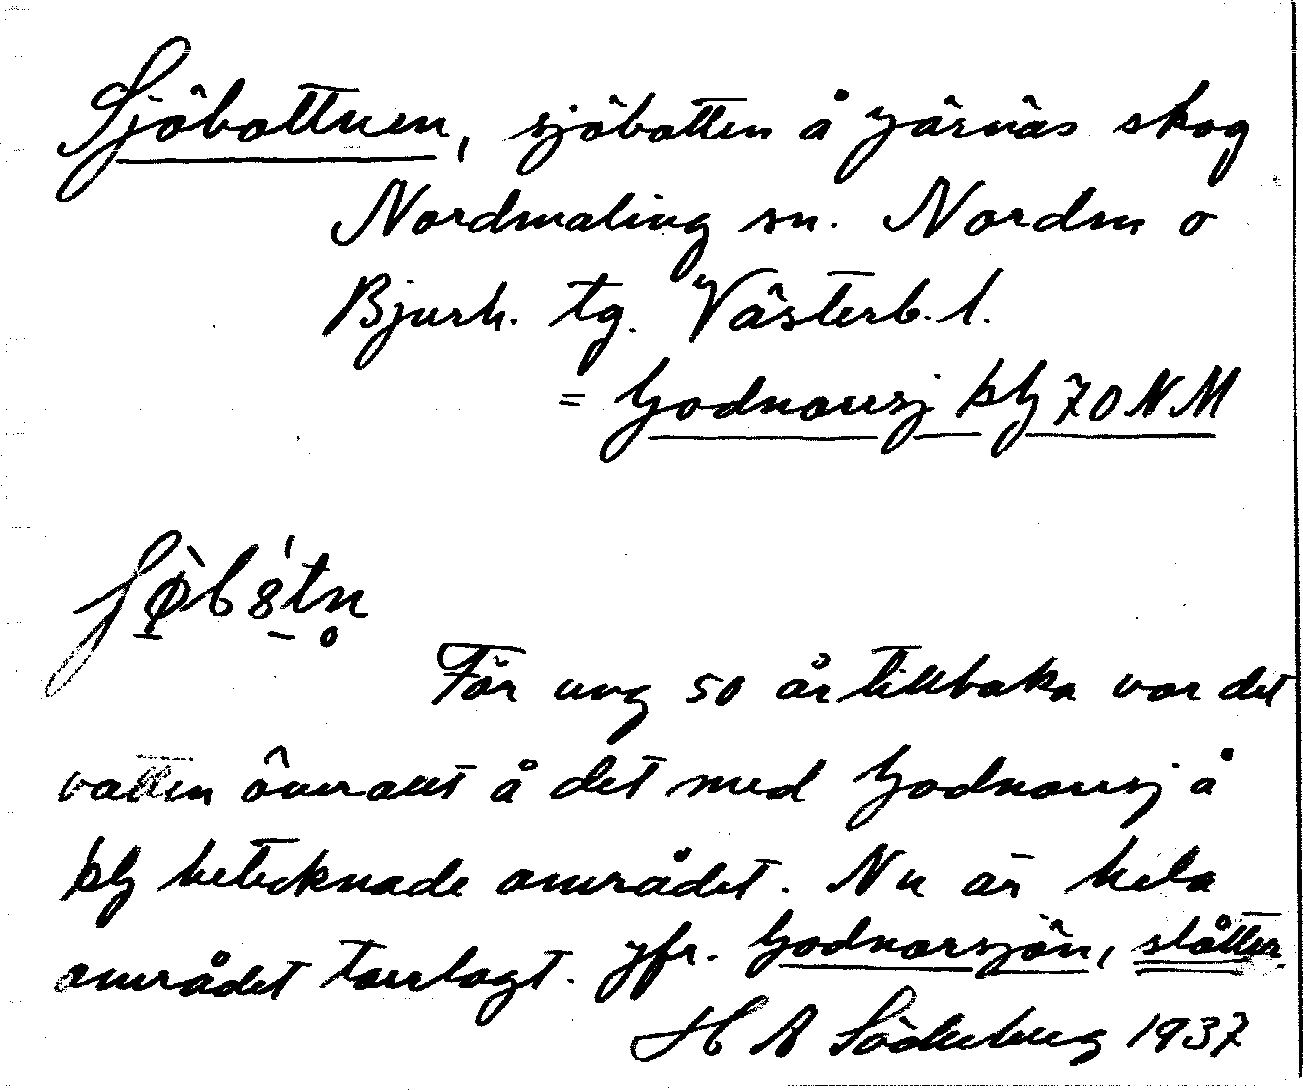 Sjöbottnen, sjöbotten å Järnäs skog
Nordmaling sn. Nordm o
Bjurh. tg. Västerb. l.
= Godnorrsj kbl 70 NM
För ung 50 år tillbaka var det
vatten överallt å det med Godnorrsj å
kbl betecknade området. Nu är hela
området torrlagt. jfr. Godnorsjön, slåtter.
H A Söderberg 1937